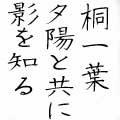 桐一葉
夕陽と共に
影を知る